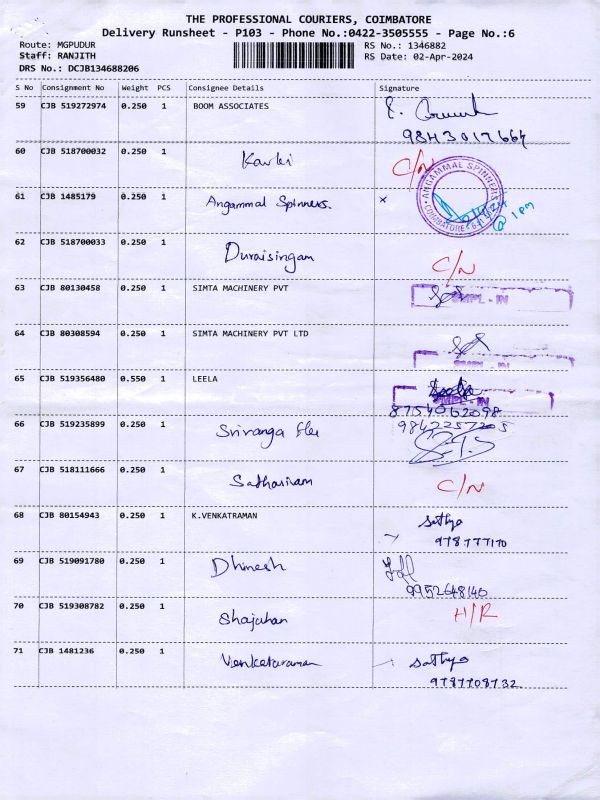 THE PROFESSIONAL COURIERS, COIMBATORE
Delivery Runsheet - P103 - Phone No.:0422-3505555 - Page No.:6
Route: MGPUDUR RS No.: 1346882
Staff: RANJITH RS Date: 02-Apr-2024
DRS No.: DCJB134688206
S No Consignment No Weight PCS Consignee Details Signature
59 CJB 519272974 0.250 1 BOOM ASSOCIATES
9843017664
60 CJB 518700032 0.250 1 Karki C/N
61 CJB 1485179 0.250 1 Angammal Spinners. x ANGAMMAL SPINNERS COIMBATORE
@ 1 pm
62 CJB 518700033 0.250 1 Duraisingam C/N
63 CJB 80130458 0.250 1 SIMTA MACHINERY PVT SMPL - IN
64 CJB 80308594 0.250 1 SIMTA MACHINERY PVT LTD
65 CJB 519356480 0.550 1 LEELA SMPL - IN
8754062098
66 CJB 519235899 0.250 1 Sriranga 9842257205
67 CJB 518111666 0.250 1 Sathasivam C/N
68 CJB 80154943 0.250 1 K.VENKATRAMAN Sathya
978777170
69 CJB 519091780 0.250 1 Dhinesh
9952648140
70 CJB 519308782 0.250 1 Shajahan H/R
71 CJB 1481236 0.250 1 Venkataraman Sathya
9787708732